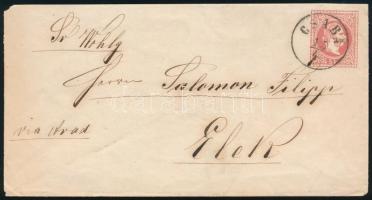 Sr Wohlg
CSABA
Herrn Salomon Filipp
via Arad
Elek